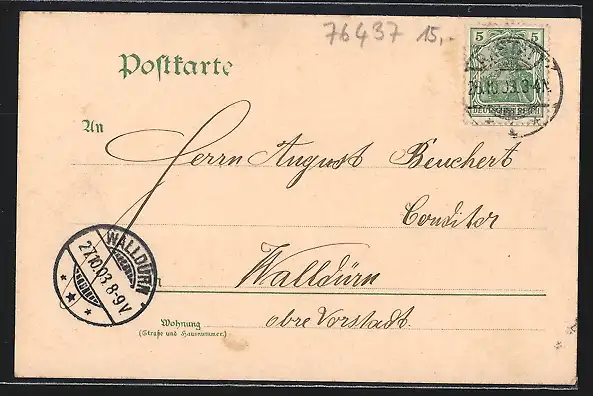 76437 15,-
5 5
26.10.03.3-4N.
DEUTSCHES REICH
Postkarte
An
Herrn August Beuchert
Conditor
WALLDÜRN
27.10.03.8-9V.
in
Walldürn
Wohnung
(Straße und Hausnummer)
obre Vorstadt.